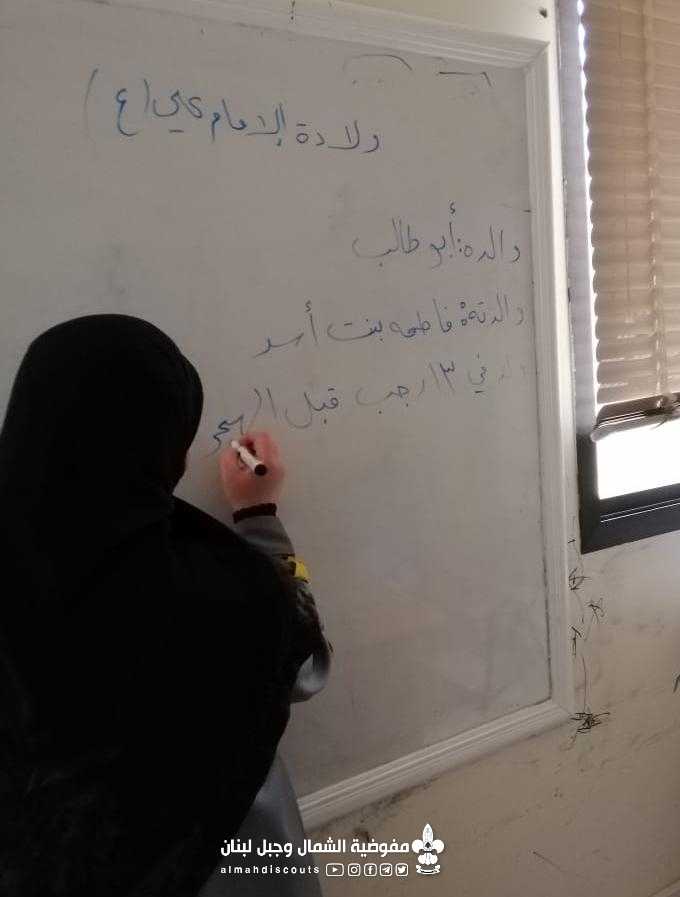 ولادة الإمام علي (ع)
والده: أبو طالب
والدتهُ فاطمه بنت أسد
ولد في ١٣ رجب قبل الهجر
مفوضية الشمال وجبل لبنان
almahdiscouts